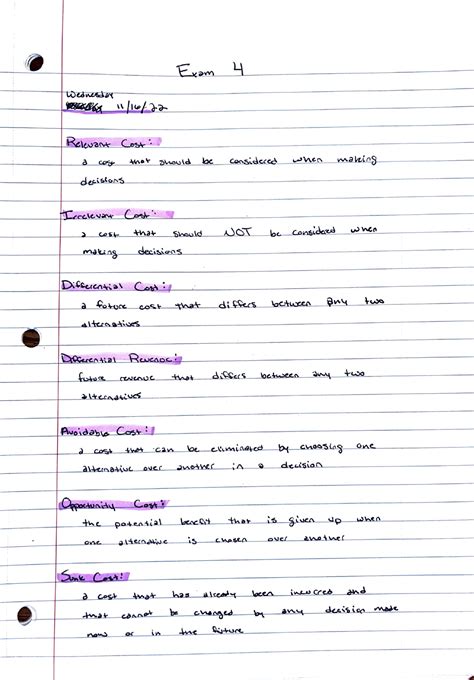 Exam 4
Wednesday
11/16/22
Relevant Cost:
a cost that should be considered when making
decisions
Irrelevant Cost:
a cost that should NOT be considered when
making decisions
Differential Cost:
a future cost that differs between any two
alternatives
Differential Revenue:
future revenue that differs between any two
alternatives
Avoidable Cost:
a cost that can be eliminated by choosing one
alternative over another in a decision
Opportunity Cost:
the potential benefit that is given up when
one alternative is chosen over another
Sunk Cost:
a cost that has already been incurred and
that cannot be changed by any decision made
now or in the future